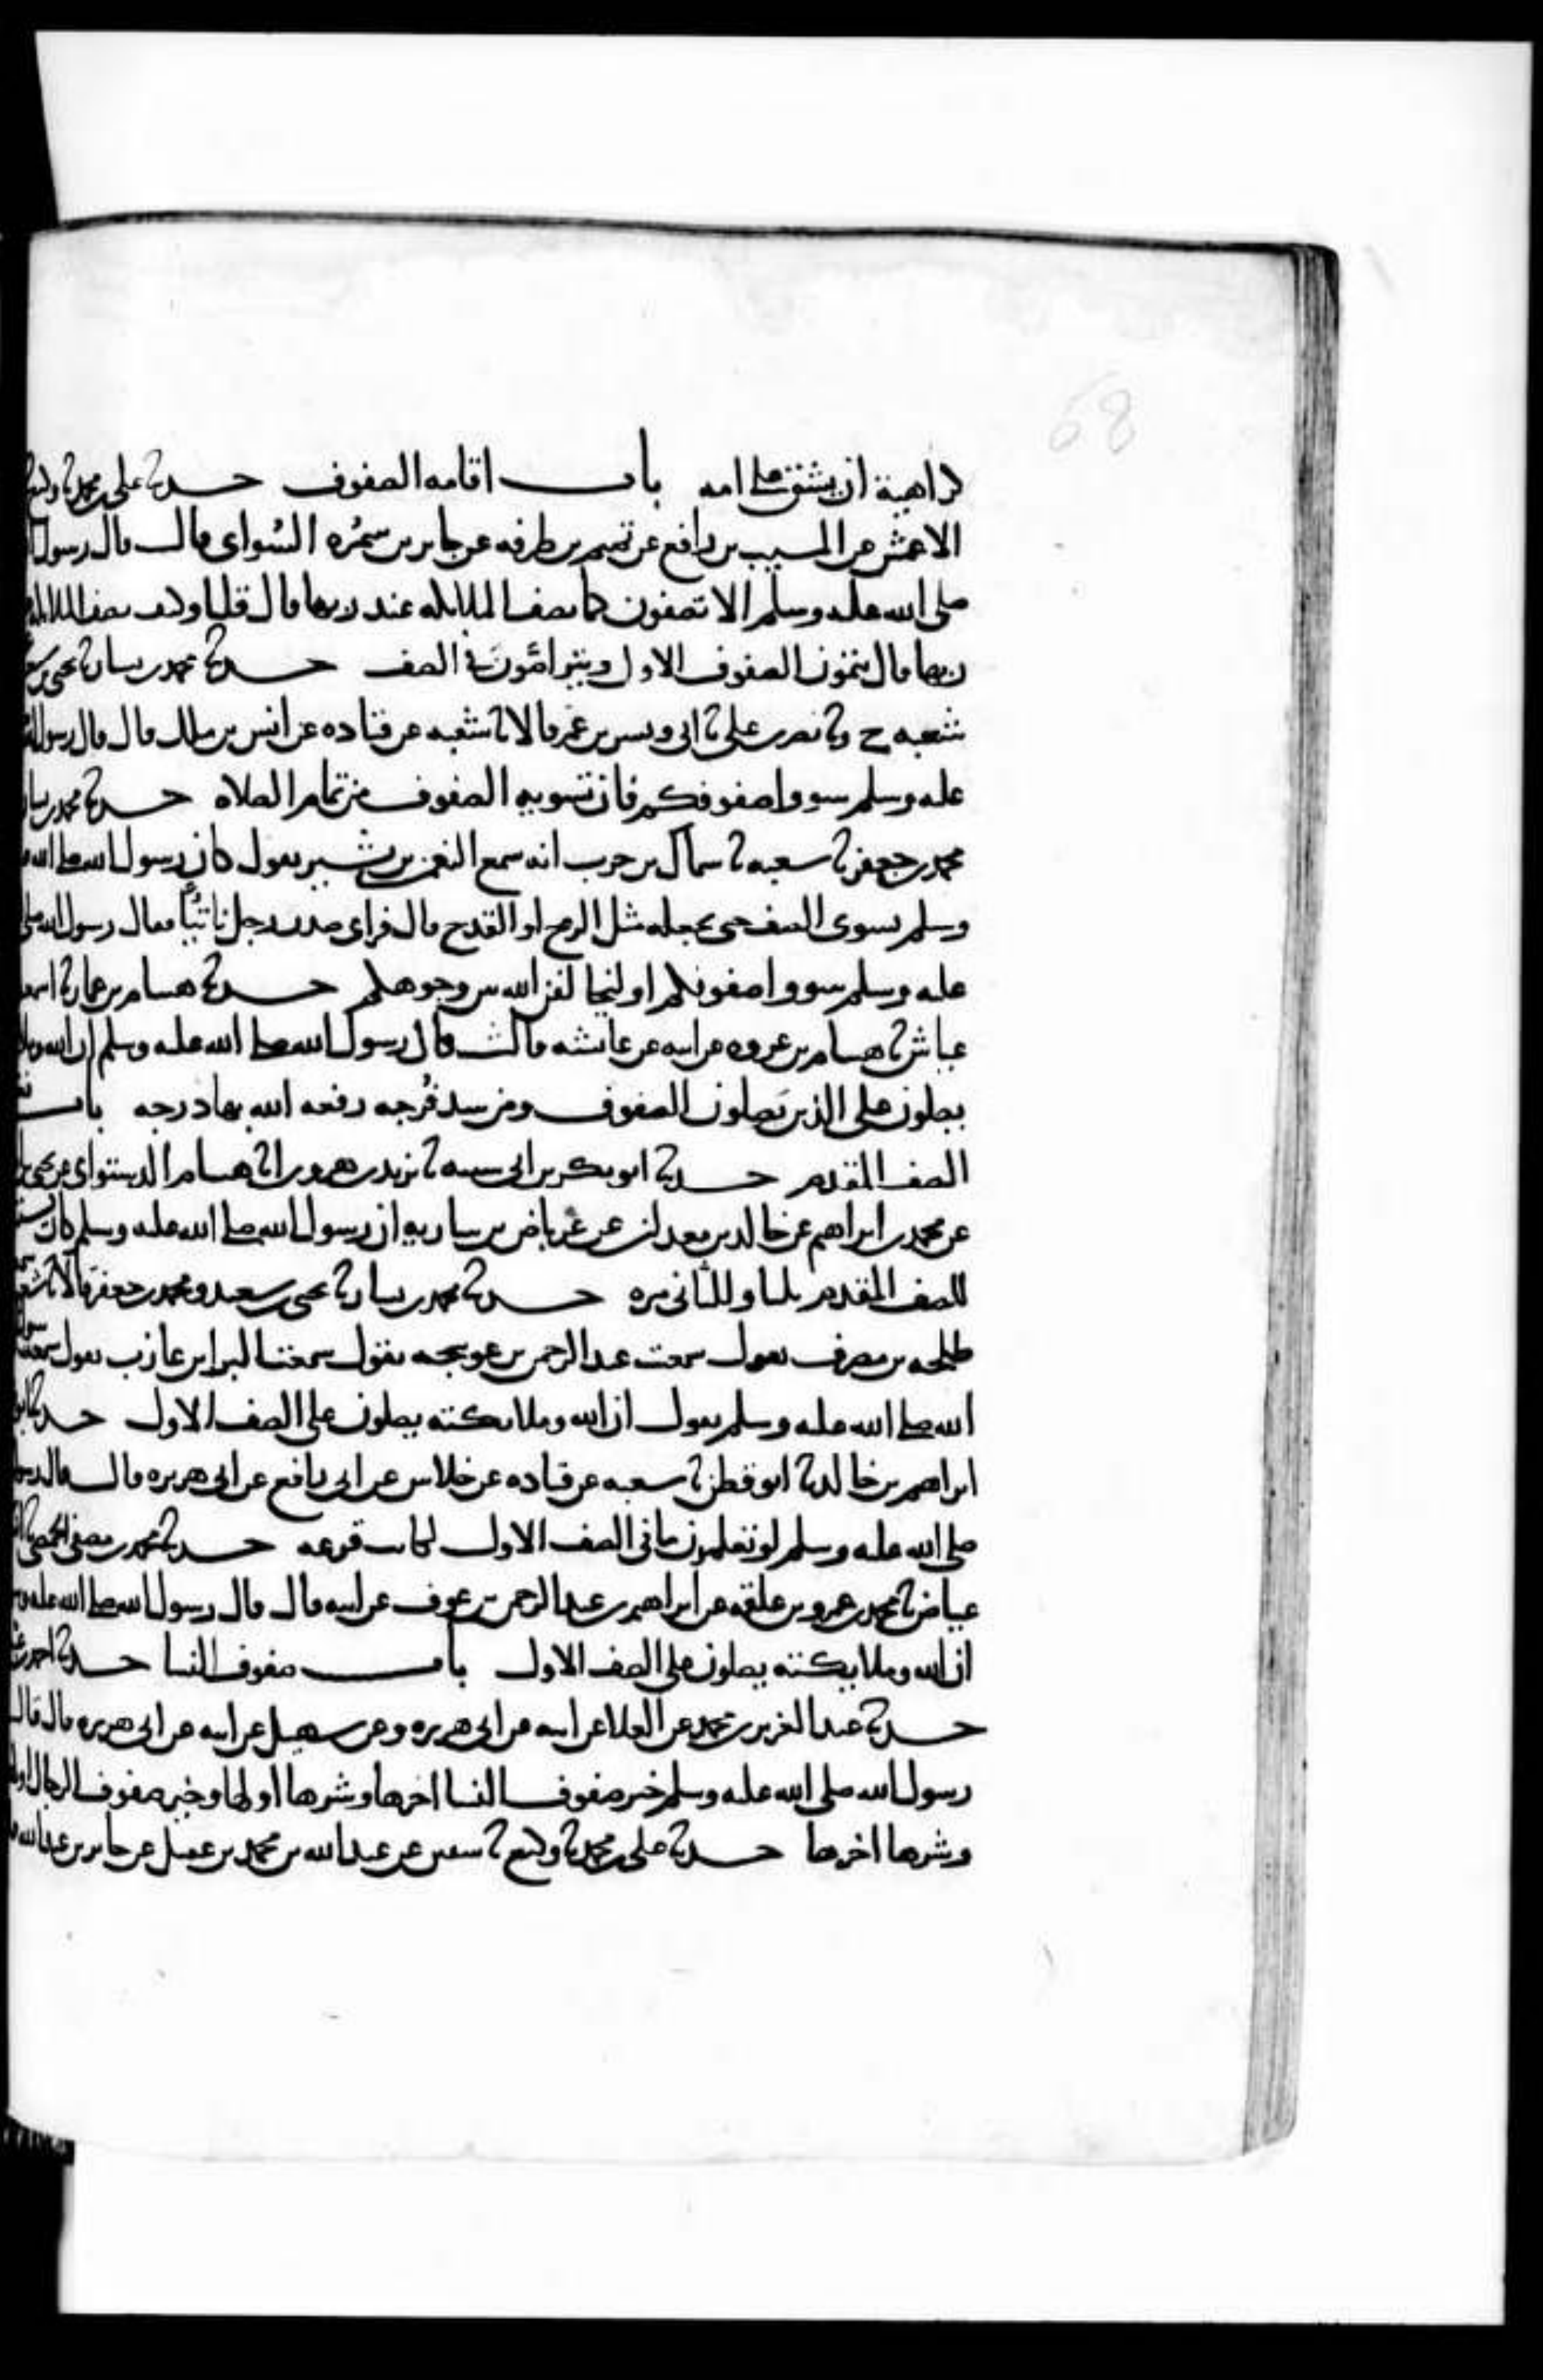 68
كراهية ان يشق على امه باب اقامه الصفوف حدثنا على بن محمد ثنا وكيع
الاعمش عن المسيب بن رافع عن تميم بن طرفه عن جابر بن سمره السُواى قال قال رسول
صلى الله عليه وسلم الا تصفون كما تصف الملايكه عند ربها قال قلنا وكيف تصف الملايكه
ربها قال يتمون الصفوف الاول ويتراصّونَ في الصف حدثنا محمد بن بشار ثنا يحيى بن سعيد
شعبه ح وثنا نصر بن على ثنا ابى وبشر بن عُمَر قالا ثنا شعبه عن قتاده عن انس بن مالك قال قال رسول الله
عليه وسلم سووا صفوفكم فان تسويه الصفوف من تمام الصلاه حدثنا محمد بن بشار
محمد بن جعفر ثنا شعبه ثنا سماك بن حرب انه سمع النعمن بن بشير يقول كان رسول الله صلى الله
وسلم يسوى الصف حتى يجعله مثل الرمح او القدح قال فراى صدر رجل ناتيًا فقال رسول الله صلى
عليه وسلم سووا صفوفكم او ليخالفن الله بين وجوهكم حدثنا هشام بن عمار ثنا اسمعيل
عياش ثنا هشام بن عروه عن ابيه عن عائشه قالت قال رسول الله صلى الله عليه وسلم ان الله وملا
يصلون على الذين يَصلون الصفوف ومن سد فُرجه رفعه الله بها درجه باب
الصف المقدم حدثنا ابو بكر بن ابى شيبه ثنا يزيد بن هرون انا هشام الدستواى عن يحيى بن
عن محمد بن ابراهيم عن خالد بن معدان عن عرباض بن ساريه ان رسول الله صلى الله عليه وسلم كان يستغفر
للصف المقدم ثلثا وللثانى مره حدثنا محمد بن بشار ثنا يحيى بن سعيد ومحمد بن جعفر قالا ثنا شعبه
طلحه بن مصرف يقول سمعت عبد الرحمن بن عوسجه يقول سمعت البرا بن عازب يقول سمعت رسول
الله صلى الله عليه وسلم يقول ان الله وملايكته يصلون على الصف الاول حدثنا ابو
ابراهيم بن خالد ثنا ابو قطن ثنا شعبه عن قتاده عن خلاس عن ابى رافع عن ابى هريره قال قال رسول
صلى الله عليه وسلم لو تعلمون ما فى الصف الاول لكانت قرعه حدثنا محمد بن مصفى الحمصى ثنا انس
عياض ثنا محمد بن عمرو بن علقمه عن ابراهيم بن عبد الرحمن بن عوف عن ابيه قال قال رسول الله صلى الله عليه وسلم
ان الله وملايكته يصلون على الصف الاول باب صفوف النسا حدثنا احمد بن
حدثنا عبد العزيز بن محمد عن العلا عن ابيه عن ابى هريره وعن سهيل عن ابيه عن ابى هريره قال قال
رسول الله صلى الله عليه وسلم خير صفوف النسا اخرها وشرها اولها وخير صفوف الرجال اولها
وشرها اخرها حدثنا على بن محمد ثنا وكيع ثنا سفين عن عبد الله بن محمد بن عقيل عن جابر بن عبد الله